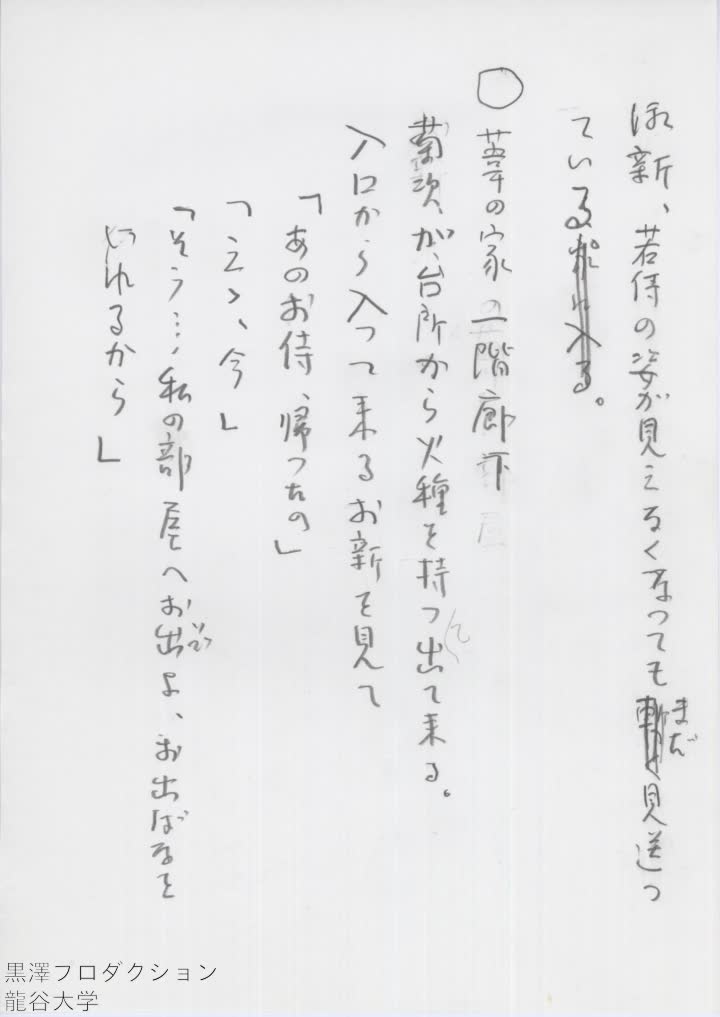 お新、若侍の姿が見えなくなってもまだ見送っ
ている。
○ 葦の家の一階廊下
菊次、が、台所から火種を持って出て来る。
入口から入って来るお新を見て
「あのお侍、帰ったの」
「えゝ、今」
「そう…、私の部屋へお出よ、お出ばなを
いれるから」
黒澤プロダクション
龍谷大学